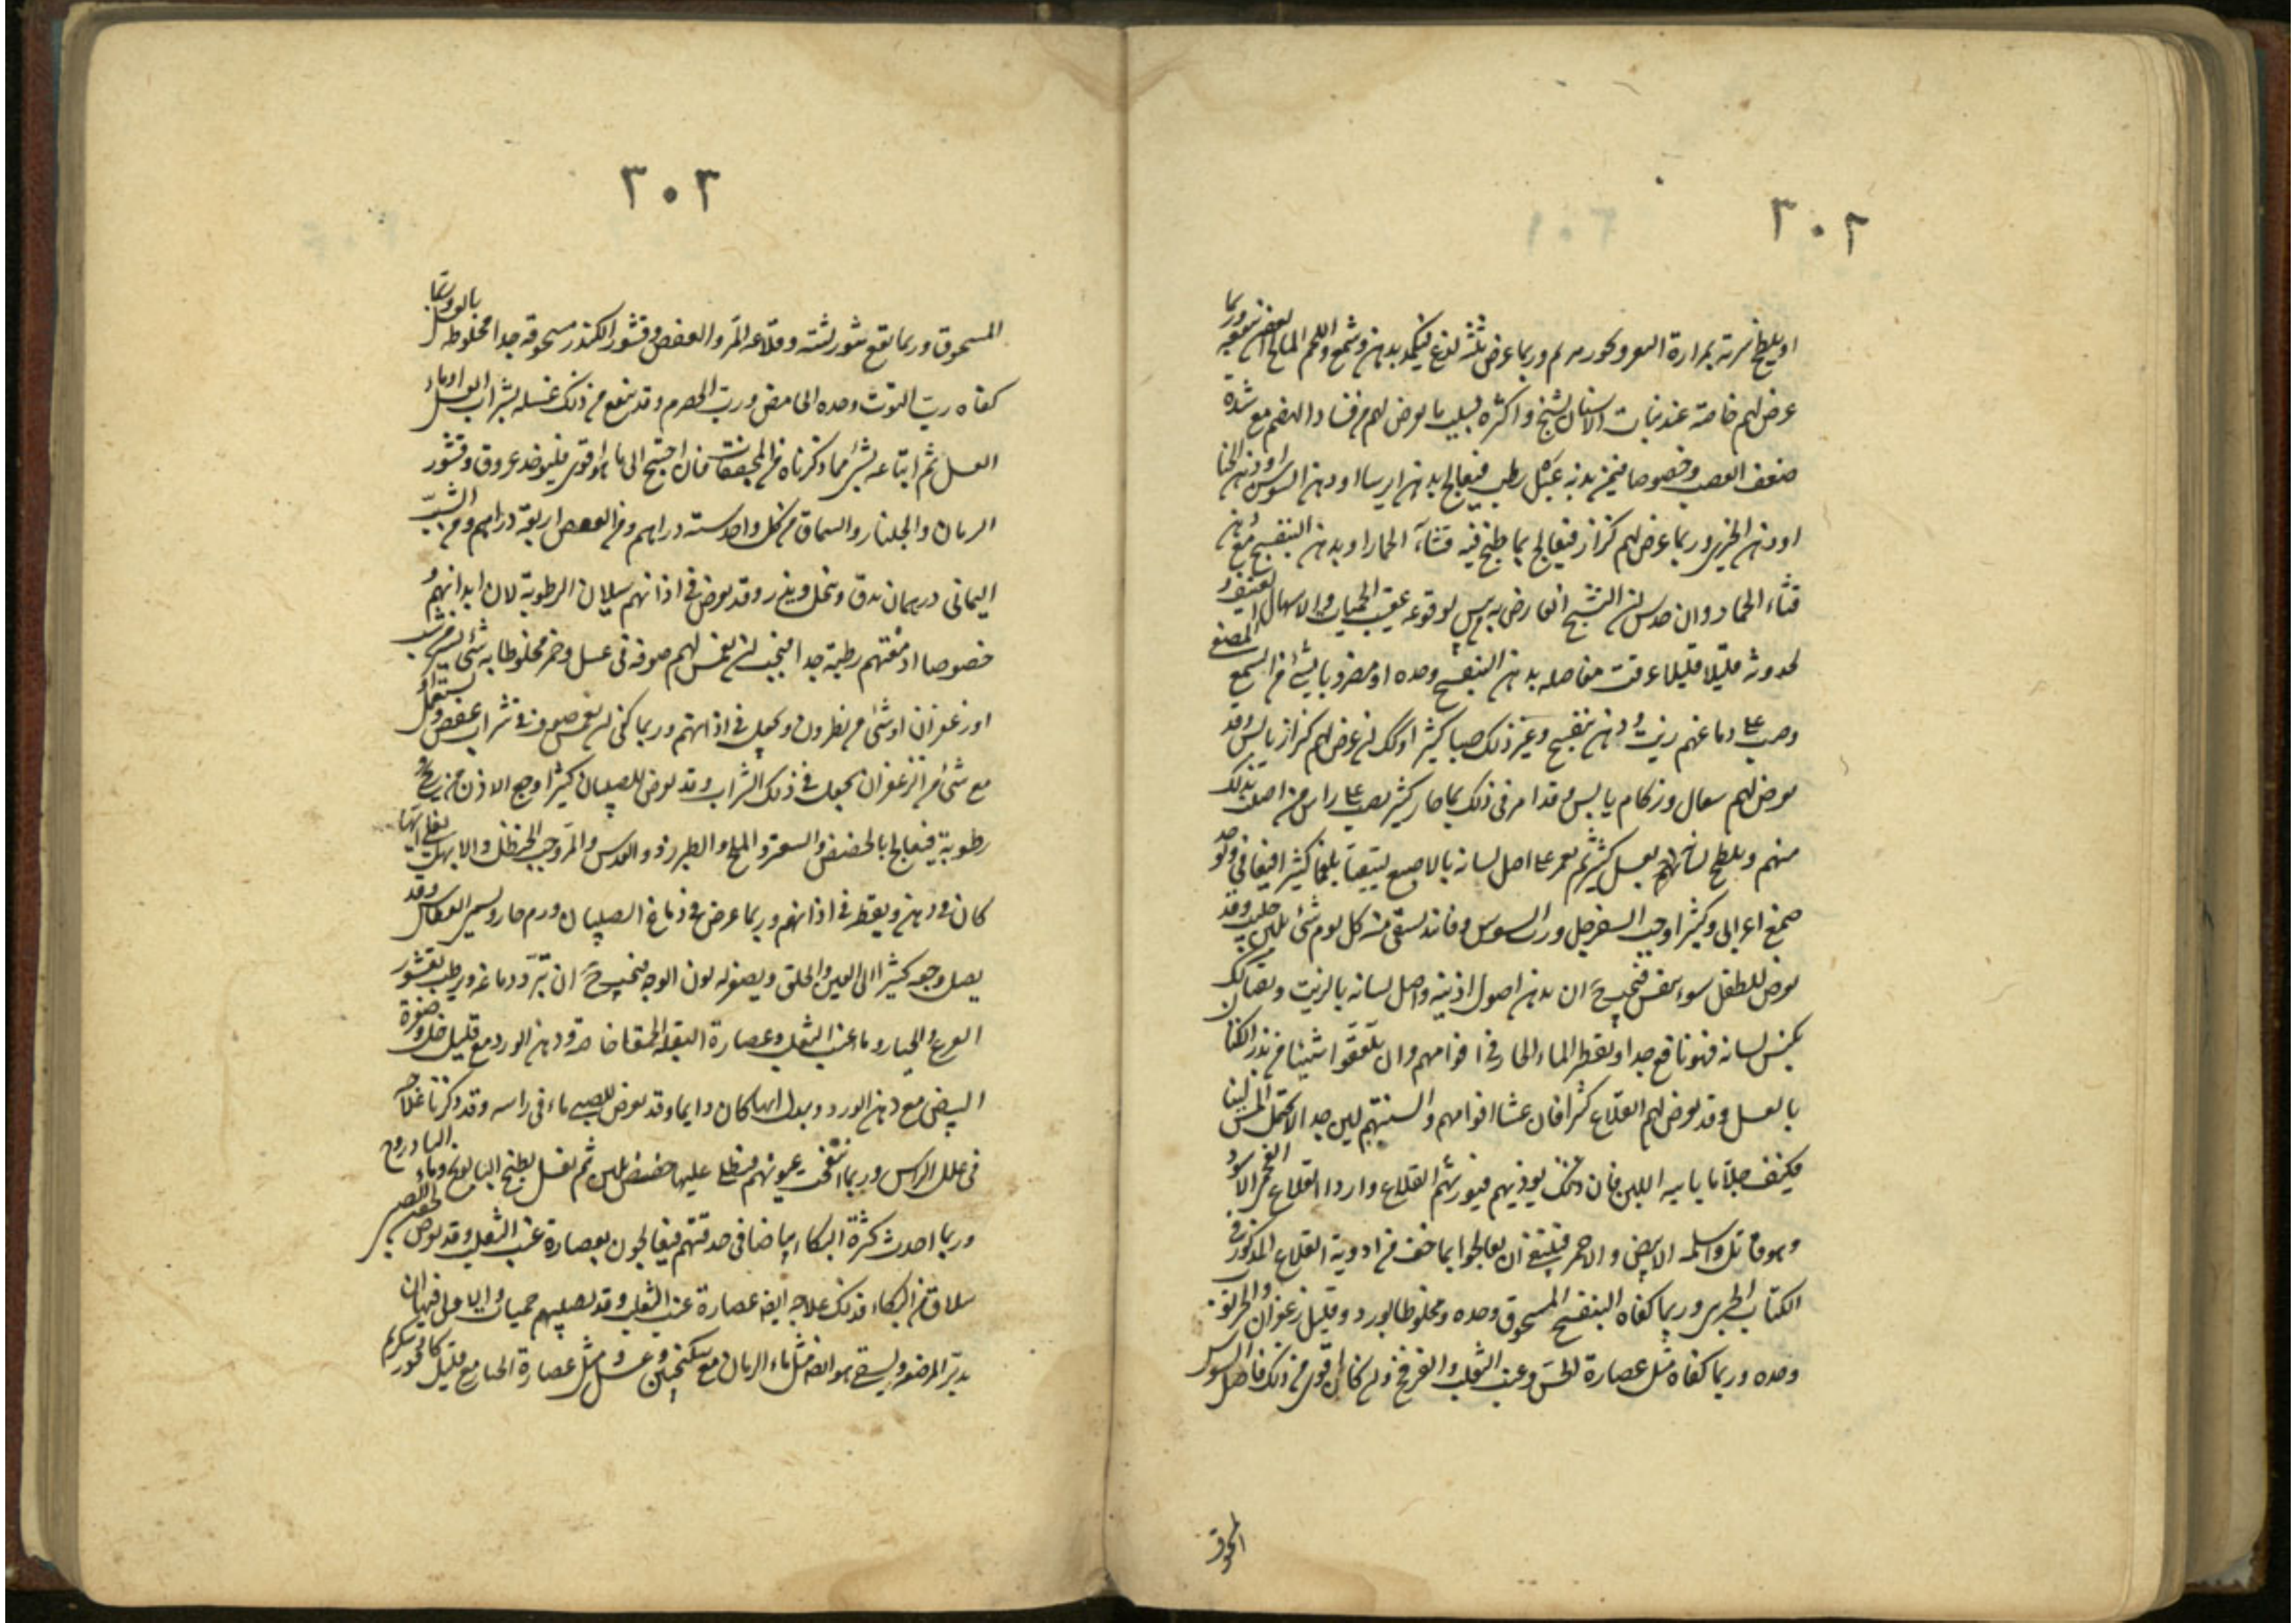 ٣٠٢
او يلطخ سرته بمرارة البقر وبخور مريم وربما عرض بلثته لذع فيكمد بدهن وشمع واللحم المالح العفن ينفعه وربما
عرض لهم خاصة عند نبات الاسنان تشنج واكثره بسبب ما يعرض لهم من فساد الهضم مع شدة
ضعف العصب وخصوصا فيمن بدنه عبل رطب فيعالج بدهن ايرسا او دهن السوسن او دهن الحنا
او دهن الخيري وربما عرض لهم كزاز فيعالج بما طبخ فيه قثاء الحمار او بدهن البنفسج مع دهن
قثاء الحمار وان حدس ان التشنج العارض به من يبس لوقوعه عقيب الحميات والاسهال العنيف و
لحدوثه قليلا قليلا عرقت مفاصله بدهن البنفسج وحده او مضروبا بشئ من الشمع المصفى
وصب على دماغهم زيت ودهن بنفسج وغير ذلك صبا كثيرا وكذلك ان عرض لهم كزاز يابس وقد
يعرض لهم سعال وزكام يابس وقد امر في ذلك بماء حار كثير يصب على راس من اصيب بذلك
منهم ويلطخ لسانهم بعسل كثير ثم يغمز على اصل لسانه بالاصبع ليتقيأ بلغما كثيرا فيعافى ويؤخذ
صمغ اعرابي وكثيرا وحب السفرجل ورب السوس وفانيذ يسقى منه كل يوم شئ بلبن حليب وقد
يعرض للطفل سوء تنفس فيجب ح ان يدهن اصول اذنيه واصل لسانه بالزيت ويقيأ وكذلك
يكبس لسانه فهو نافع جدا ويقطر الماء الحار في افواههم وان يلعقوا شيئا من بذر الكتان
بالعسل وقد يعرض لهم القلاع كثيرا فان غشاء افواههم والسنتهم لين جدا لا يحتمل اللمس لينا
فكيف جلاء مائية اللبن فان ذلك يؤذيهم فيورثهم القلاع واردا القلاع الفحمي الاسود
وهو قاتل واسلمه الابيض والاحمر فينبغي ان يعالجوا بما خف من ادوية القلاع المذكور في
الكتاب الجزيى وربما كفاه البنفسج المسحوق وحده ومخلوطا بورد وقليل زعفران والخرنوب
وحده وربما كفاه مثل عصارة الخس وعنب الثعلب والفرفخ فان كان اقوى من ذلك فاصل السوس
المسحوق
٣٠٣
المسحوق وربما نفع بثور لثته وقلاعه المر والعفص وقشور الكندر مسحوقة جدا مخلوطة بالعسل وربما
كفاه رب التوت وحده الحامض ورب الحصرم وقد ينفع من ذلك غسله بشراب العسل او ماء
العسل ثم اتباعه بشئ مما ذكرناه من المجففات فان احتيج الى ما هو اقوى فليوخذ عروق وقشور
الرمان والجلنار والسماق من كل واحد ستة دراهم ومن العفص اربعة دراهم ومن الشب
اليماني درهمان يدق وينخل ويذر وقد يعرض في اذانهم سيلان الرطوبة لان ابدانهم و
خصوصا ادمغتهم رطبة جدا فيجب ان يغمس لهم صوفة في عسل وخمر مخلوطا به شئ يسير من شب
او زعفران او شئ من نطرون ويجعل في اذانهم وربما كفى ان يغمس صوفة في شراب عفص ويستعمل
مع شئ من الزعفران يجعل في ذلك الشراب وقد يعرض للصبيان كثيرا وجع الاذن من ريح او
رطوبة فيعالج بالحضض والسعتر والملح الطبرزد والعدس والمر وحب الحنظل والابهل يغلى ايها
كان في دهن ويقطر في اذانهم وربما عرض في دماغ الصبيان ورم حار ويسمى العطاس وقد
يصل وجعه كثيرا الى العين والحلق ويصفر له لون الوجه فيجب ح ان تبرد دماغه ويرطب بقشور
القرع والخيار وماء عنب الثعلب وعصارة البقلة الحمقا خاصة ودهن الورد مع قليل خل وصفرة
البيض مع دهن الورد ويبدل ايها كان دايما وقد يعرض للصبي ماء في راسه وقد ذكرنا علاجه
في علل الراس وربما انتفخت عيونهم فيطلى عليها حضض بلبن ثم يغسل بطبيخ البابونج وماء البادروج
وربما احدث كثرة البكاء بياضا في حدقتهم فيعالجون بعصارة عنب الثعلب وقد يعرض لجفن الصبي
سلاق من البكاء فذلك علاجه ايضه عصارة عنب الثعلب وقد يصيبهم حميات والاولى فيها ان
يدبر المرضعة ويسقى هو ايضه مثل ماء الرمان مع سكنجبين وعسل ومثل عصارة الخيار مع قليل كافور وسكر ثم